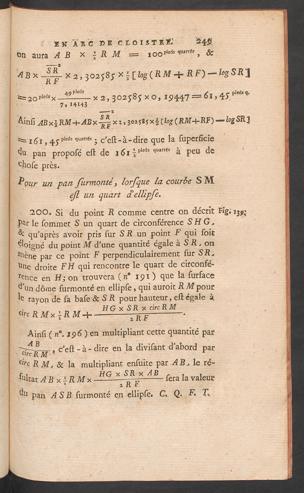 EN ARC DE CLOISTRE. 245
on aura AB × ½ RM = 100 pieds quarrés, &
AB × SR²/RF × 2,302585 × ½ [log (RM + RF) — log SR]
= 20 pieds × 49 pieds/7,14143 × 2,302585 × 0,19447 = 61,45 pieds q.
Ainsi AB × ½ RM + AB × SR²/RF × 2,302585 × ½ [log (RM + RF) — log SR]
= 161,45 pieds quarrés; c'est-à-dire que la superficie
du pan proposé est de 161 ½ pieds quarrés à peu de
chose près.
Pour un pan surmonté, lorsque la courbe SM
est un quart d'ellipse.
200. Si du point R comme centre on décrit Fig. 139;
par le sommet S un quart de circonférence SHG,
& qu'après avoir pris sur SR un point F qui soit
éloigné du point M d'une quantité égale à SR, on
mène par ce point F perpendiculairement sur SR,
une droite FH qui rencontre le quart de circonfé-
rence en H; on trouvera (n° 191) que la surface
d'un dôme surmonté en ellipse, qui auroit RM pour
le rayon de sa base & SR pour hauteur, est égale à
circ RM × ½ RM + HG × SR × circ RM/2RF.
Ainsi (n°. 196) en multipliant cette quantité par
AB/circ RM, c'est-à-dire en la divisant d'abord par
circ RM, & la multipliant ensuite par AB, le ré-
sultat AB × ½ RM × HG × SR × AB/2RF sera la valeur
du pan ASB surmonté en ellipse. C. Q. F. T.